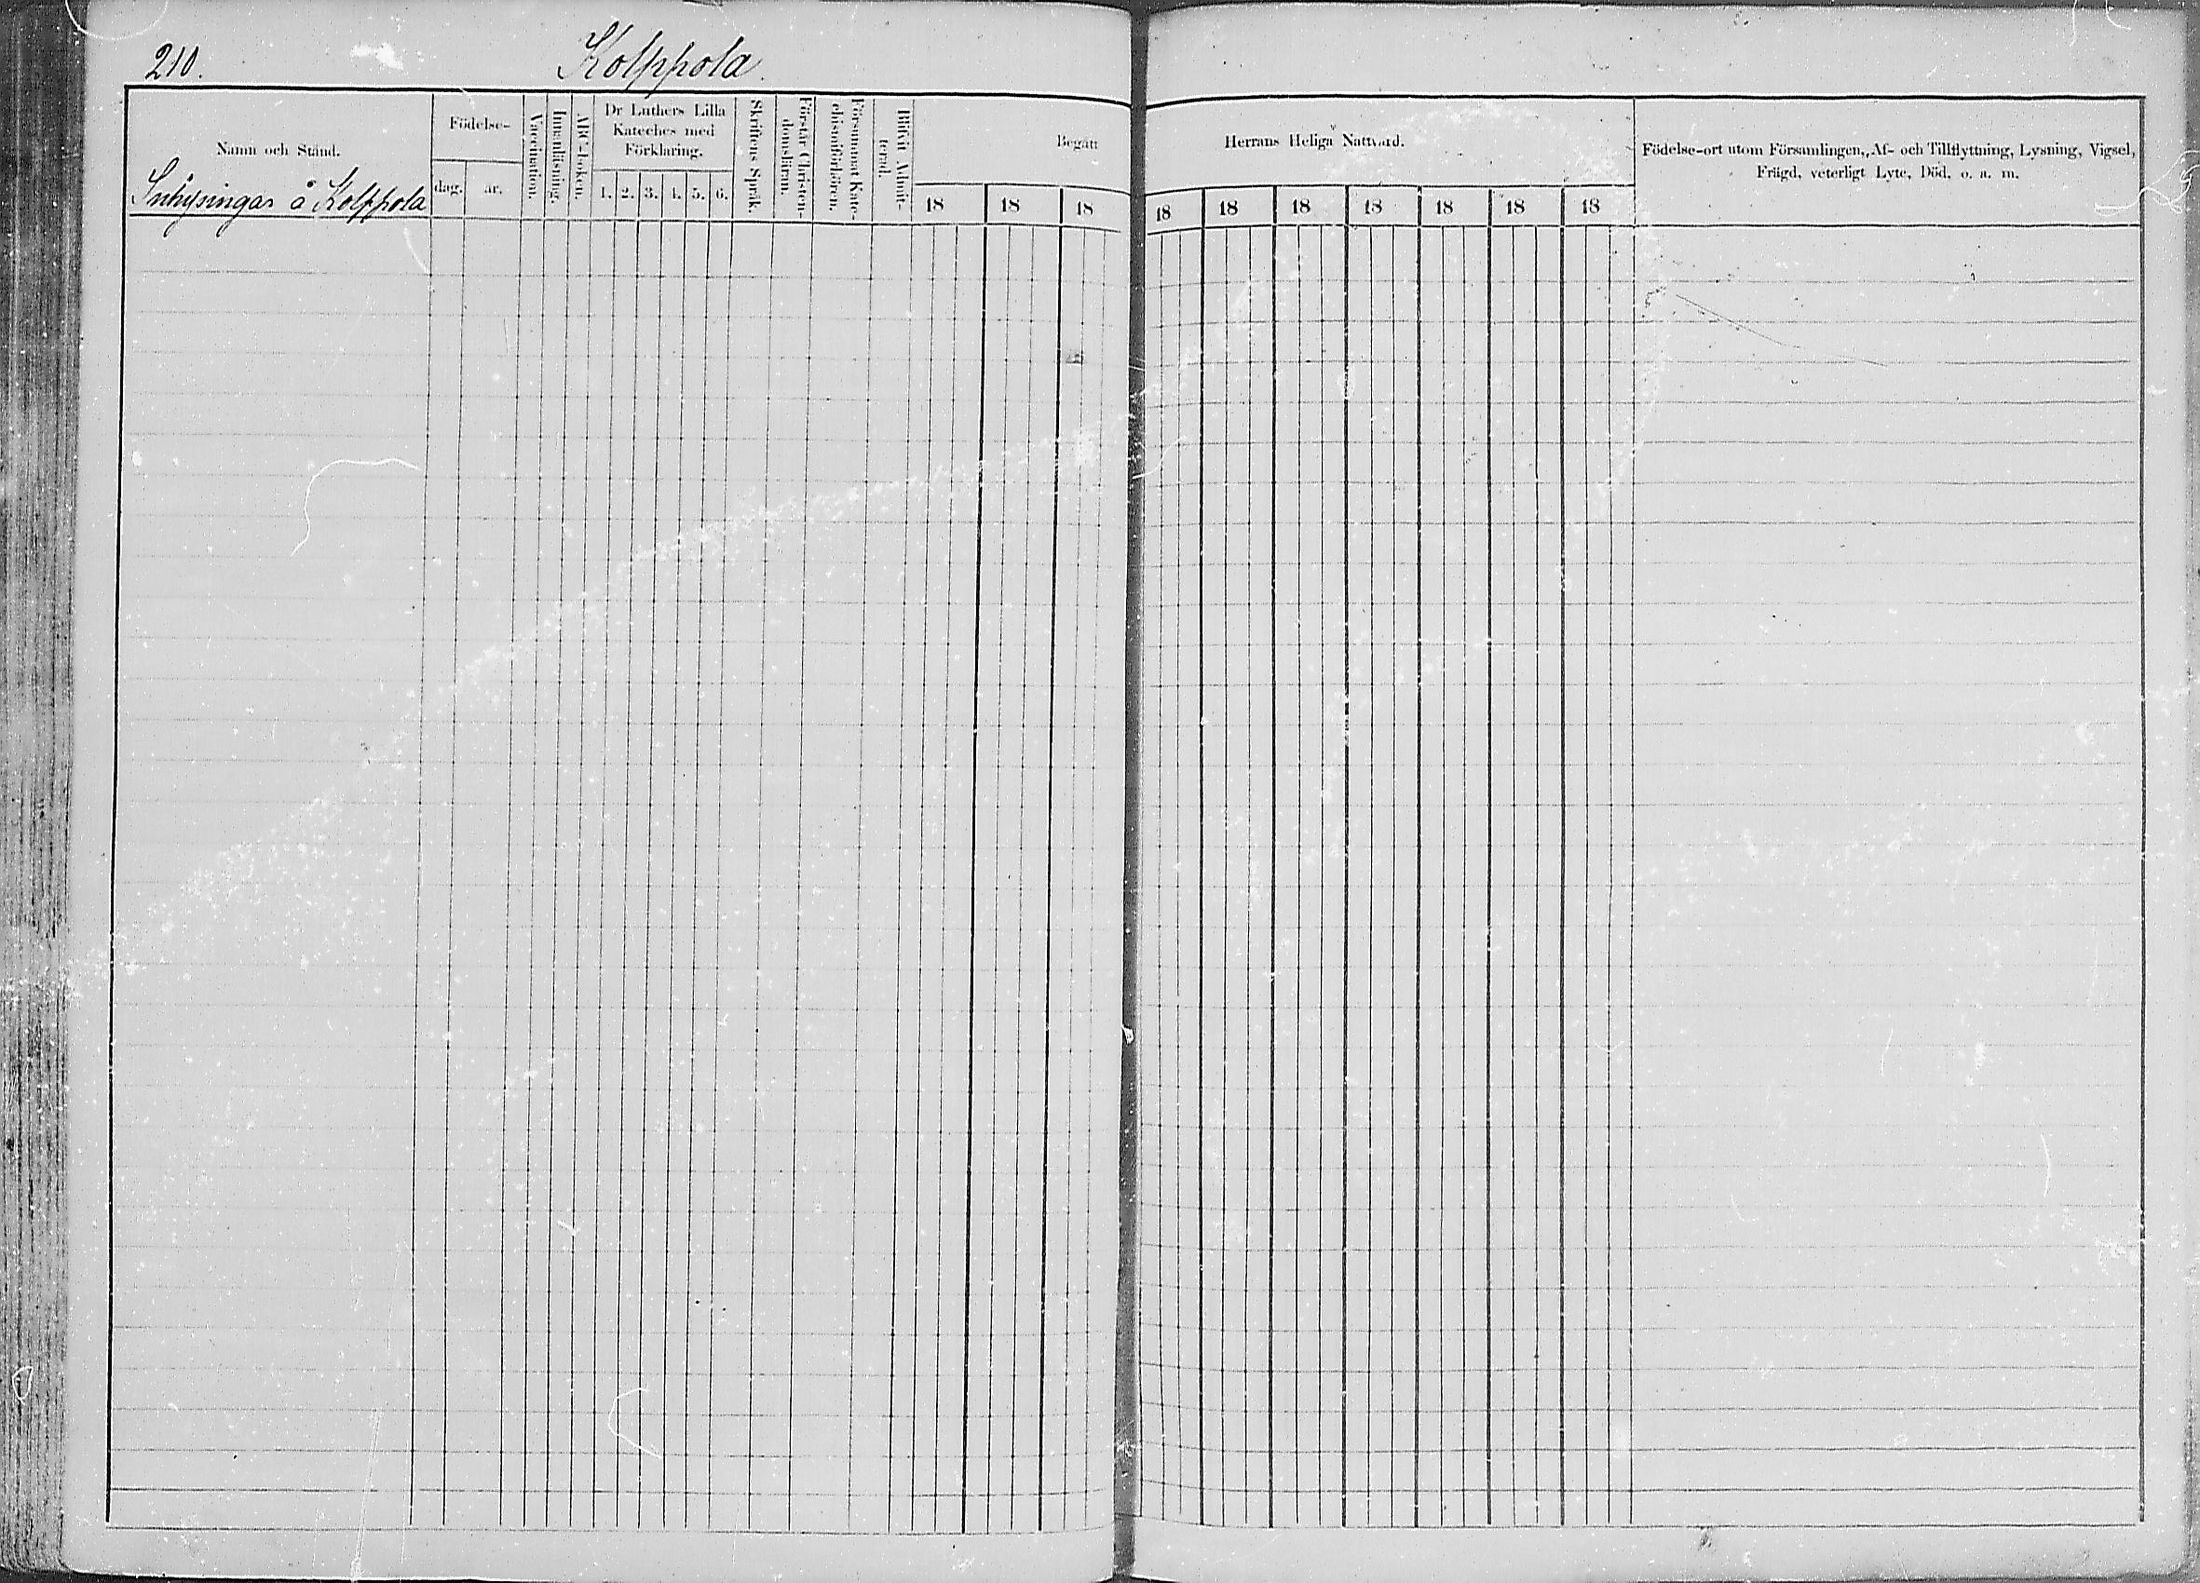 210.
Kolppola.
Namn och Stånd.
Inhysingar å Kolppola
Födelse-
dag.
år.
Vaccination.
Innanläsning.
ABC-boken.
Dr Luthers Lilla
Kateches med
Förklaring.
1. 2. 3. 4. 5. 6.
Skriftens Språk.
Förstår Christen-
domsläran.
Försummat Kate-
chismiförhören.
Blifvit Admit-
terad.
Begått
18 18 18
Herrans Heliga Nattvard.
18 18 18 18 18 18 18
Födelse-ort utom Församlingen, Af- och Tillflyttning, Lysning, Vigsel,
Frägd, veterligt Lyte, Död, o. a. m.